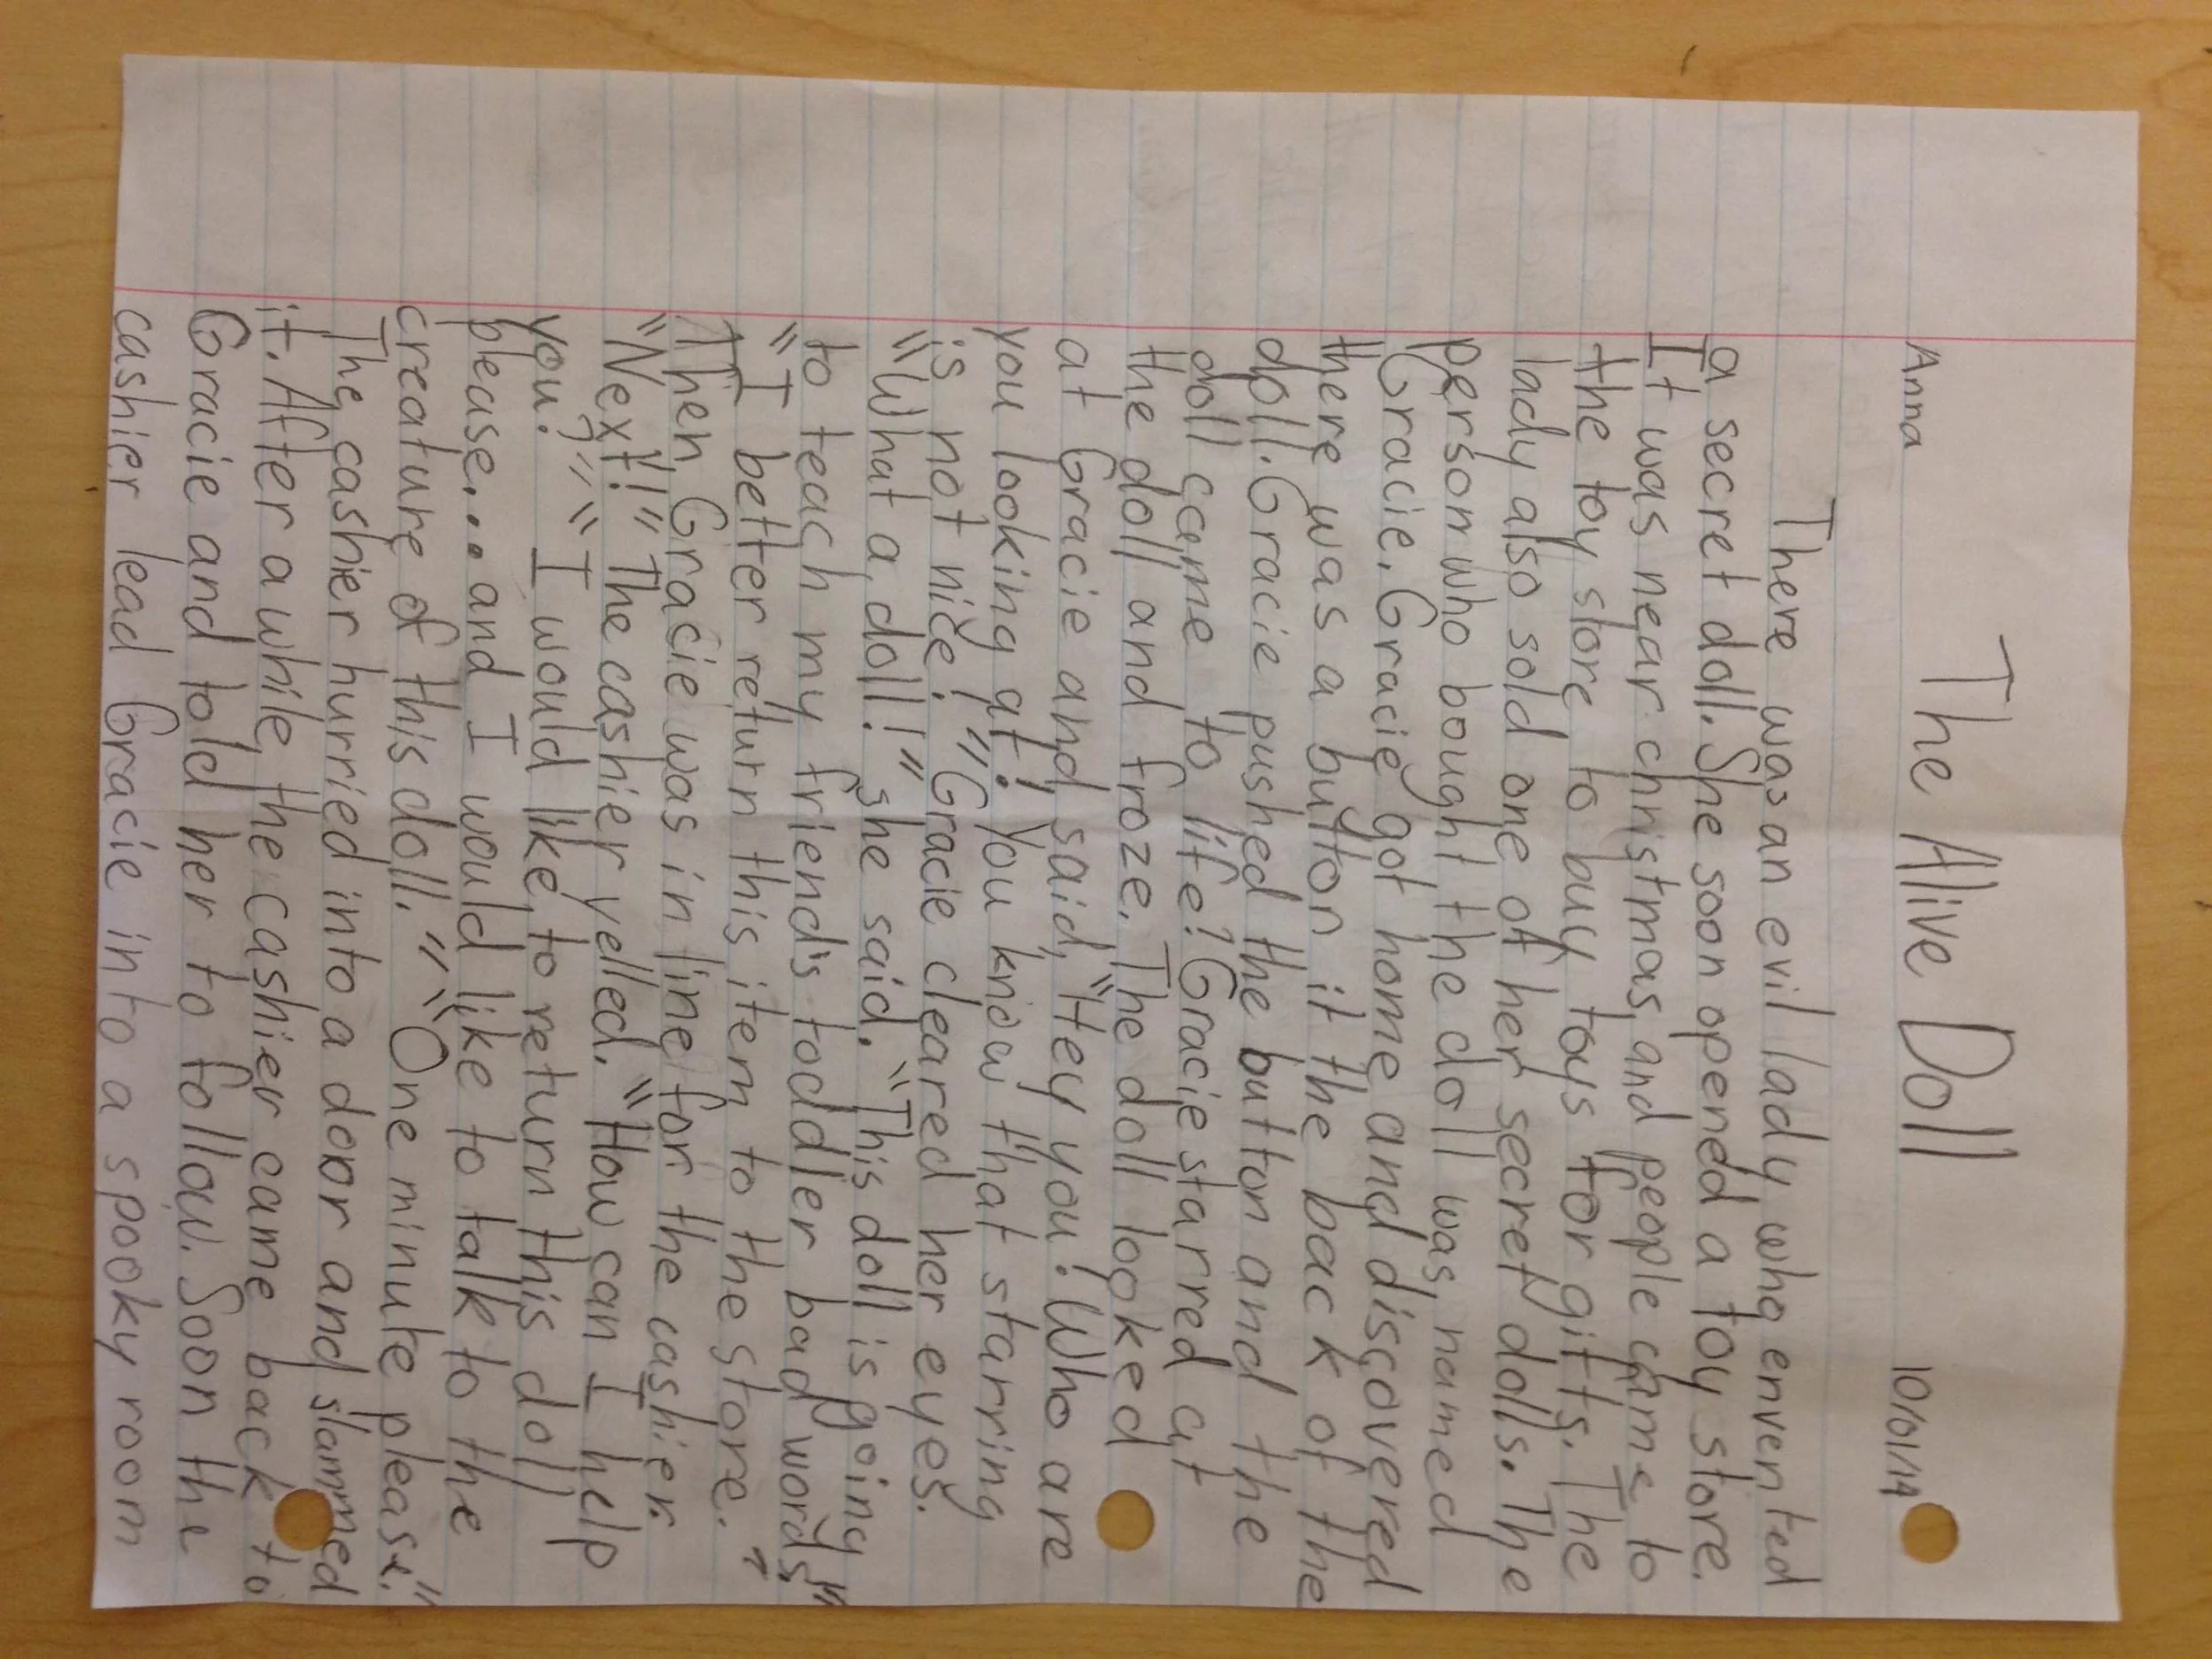 Anna
10/01/14
The Alive Doll
There was an evil lady who envented
a secret doll. She soon opened a toy store.
It was near christmas, and people came to
the toy store to buy toys for gifts. The
lady also sold one of her secret dolls. The
person who bought the doll was, named
Gracie. Gracie got home and discovered
there was a button it the back of the
doll. Gracie pushed the button and the
doll came to life! Gracie starred at
the doll and froze. The doll looked
at Gracie and said, "Hey you! Who are
you looking at! You know that starring
is not nice!" "Gracie cleared her eyes.
"What a doll!" she said. "This doll is going
to teach my friend's toddler bad words"
"I better return this item to the store."
Then, Gracie was in line for the cashier.
"Next!" The cashier yelled. "How can I help
you?" "I would like, to return this doll
please... and I would like to talk to the
creature of this doll." "One minute please."
The cashier hurried into a door and slammed
it. After a while, the cashier came back to
Gracie and told her to follow. Soon the
cashier lead Gracie into a spooky room